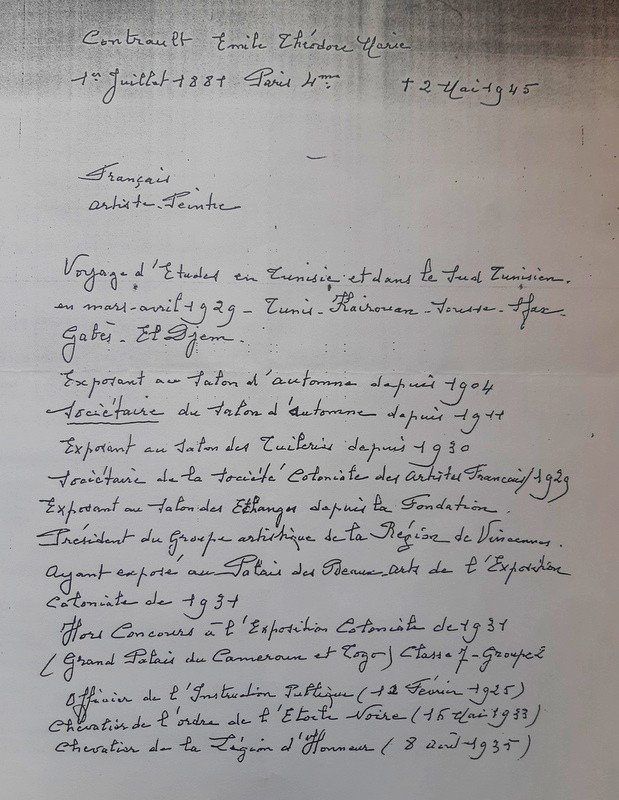 Contrault Emile Théodore Marie
1er Juillet 1881 Paris 4me † 2 Mai 1945
Français
artiste-Peintre
Voyage d'Etudes en Tunisie et dans le Sud Tunisien.
en mars-avril 1929 - Tunis - Kairouan - Sousse - Sfax -
Gabès - El Djem.
Exposant au Salon d'automne depuis 1904
Sociétaire du Salon d'automne depuis 1911
Exposant au Salon des Tuileries depuis 1930
Sociétaire de la Société Coloniale des Artistes Français / 1929
Exposant au Salon des Echanges depuis la Fondation.
Président du Groupe artistique de la Région de Vincennes.
ayant exposé au Palais des Beaux-arts de l'Exposition
Coloniale de 1931
Hors Concours à l'Exposition Coloniale de 1931
(Grand Palais du Cameroun et Togo) Classe 7 - Groupe 2
Officier de l'Instruction Publique (12 Février 1925)
Chevalier de l'ordre de l'Etoile Noire (16 Mai 1933)
Chevalier de la Légion d'Honneur (8 août 1935)